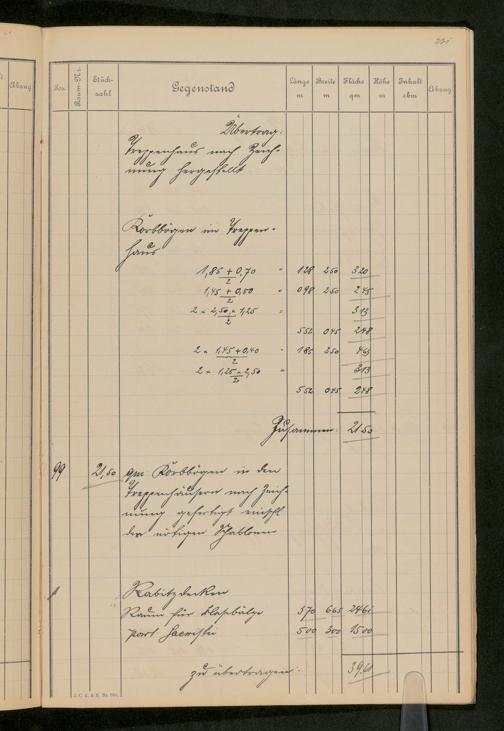 Pos.
Raum-Nr.
Stück-
zahl
Gegenstand
Länge
m
Breite
m
Fläche
qm
Höhe
m
Inhalt
cbm
Abzug
Abzug
Übertrag:
Treppenhaus nach Zeich-
nung hergestellt
Korbbögen im Treppen-
haus
1,85 + 0,70 / 2 = 128 250 320
1,45 + 0,50 / 2 = 098 250 245
2 = 2,50 = 1,25 / 2 = 313
552 045 248
2 = 1,45 + 0,40 / 2 = 185 250 463
2 = 1,25 = 2,50 / 2 = 313
552 045 248
Zusammen: 21 50
99 21,50 qm Korbbögen in den
Treppenhäusern nach Zeich-
nung gefertigt einschl
der nötigen Schablonen
Rabitzdecken
Raum für Blasebälge 570 665
500 300 1500
zu übertragen: